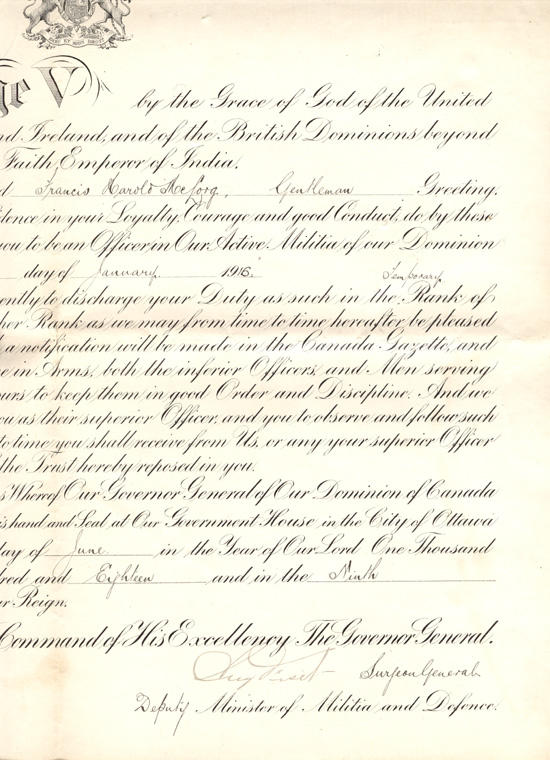 ge V by the Grace of God of the United
nd, Ireland, and of the British Dominions beyond
Faith, Emperor of India.
d Francis Harold McLorg, Gentleman Greeting,
dence in your Loyalty, Courage and good Conduct, do by these
you to be an Officer in Our Active Militia of our Dominion
day of January 1916. Temporary
ently to discharge your Duty as such in the Rank of
her Rank as we may from time to time hereafter be pleased
h a notification will be made in the Canada Gazette, and
e in Arms, both the inferior Officers and Men serving
ours to keep them in good Order and Discipline. And we
you as their superior Officer, and you to observe and follow such
to time you shall receive from Us, or any your superior Officer
the Trust hereby reposed in you.
s Whereof Our Governor General of Our Dominion of Canada
is hand and Seal at Our Government House in the City of Ottawa
day of June in the Year of Our Lord One Thousand
dred and Eighteen and in the Ninth
r Reign.
Command of His Excellency The Governor General.
Surgeon General
Deputy Minister of Militia and Defence.